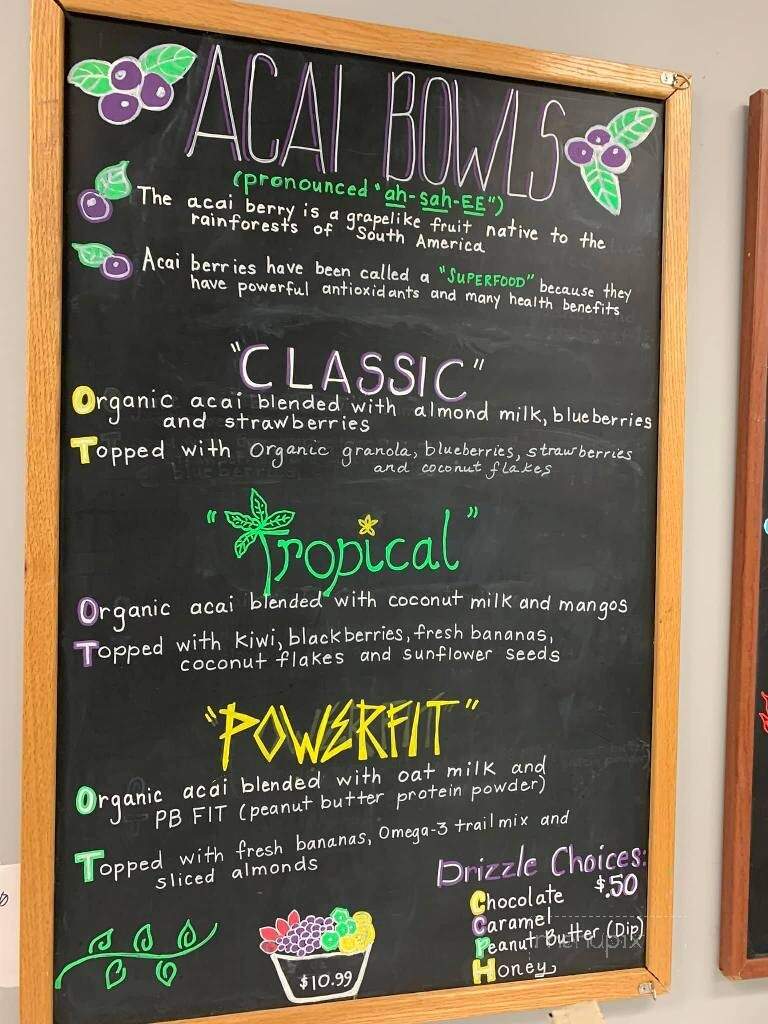 ACAI BOWLS
(pronounced "ah-sah-EE")
The acai berry is a grapelike fruit native to the
rainforests of South America
Acai berries have been called a "SUPERFOOD" because they
have powerful antioxidants and many health benefits
"CLASSIC"
Organic acai blended with almond milk, blueberries
and strawberries
Topped with Organic granola, blueberries, strawberries
and coconut flakes
"Tropical"
Organic acai blended with coconut milk and mangos
Topped with kiwi, blackberries, fresh bananas,
coconut flakes and sunflower seeds
"POWERFIT"
Organic acai blended with oat milk and
PB FIT (peanut butter protein powder)
Topped with fresh bananas, Omega-3 trail mix and
sliced almonds
Drizzle Choices:
$.50
Chocolate
Caramel
Peanut Butter (Dip)
Honey
$10.99
menupix